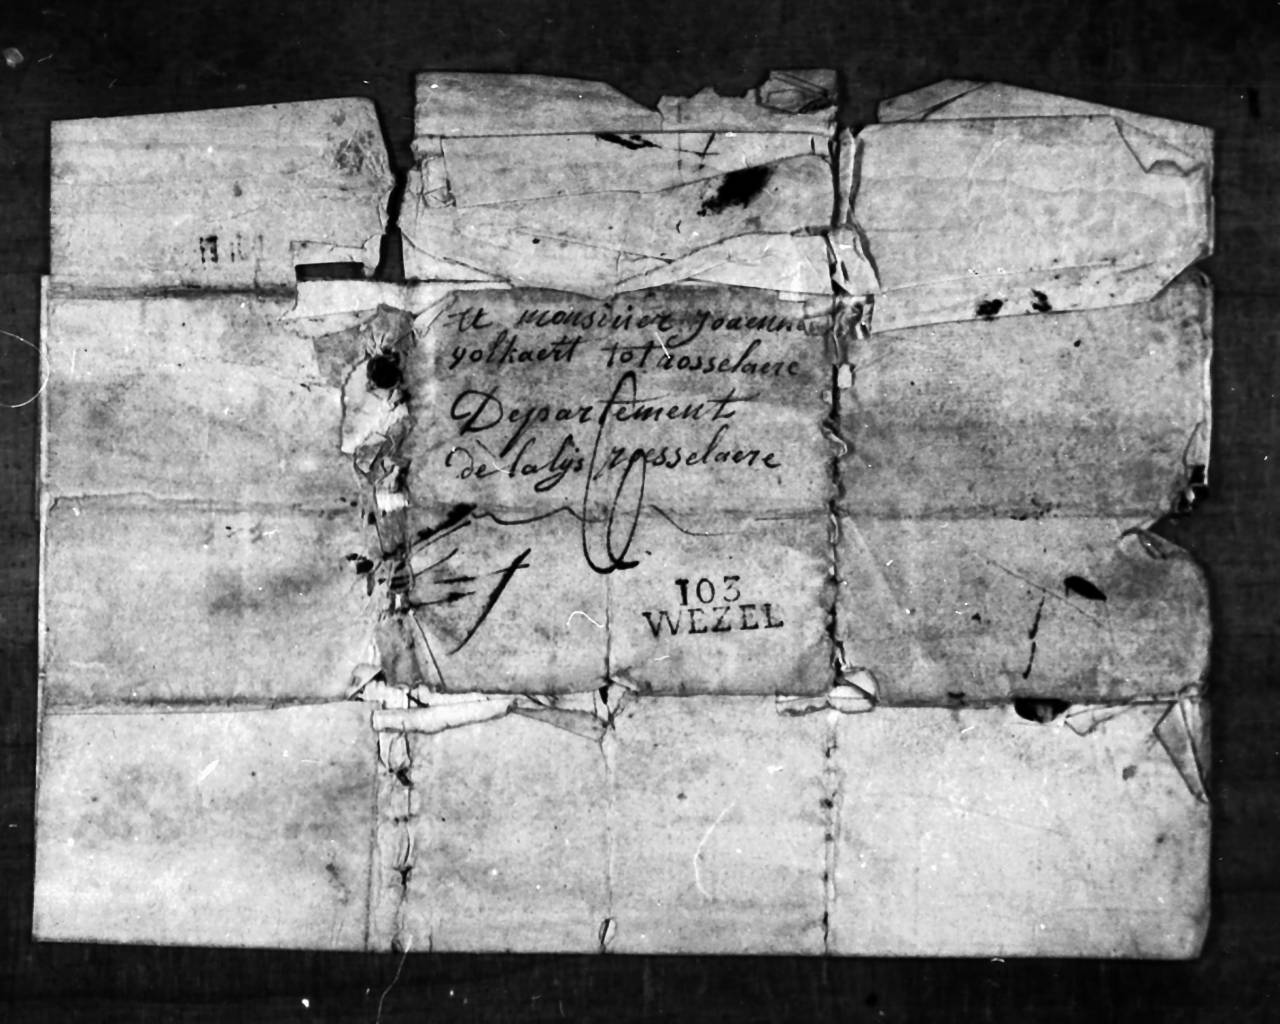 A monsiuer joaenn
yolkaert tot aosselaere
Departement
dè lalijs roesselaere
103
WEZEL